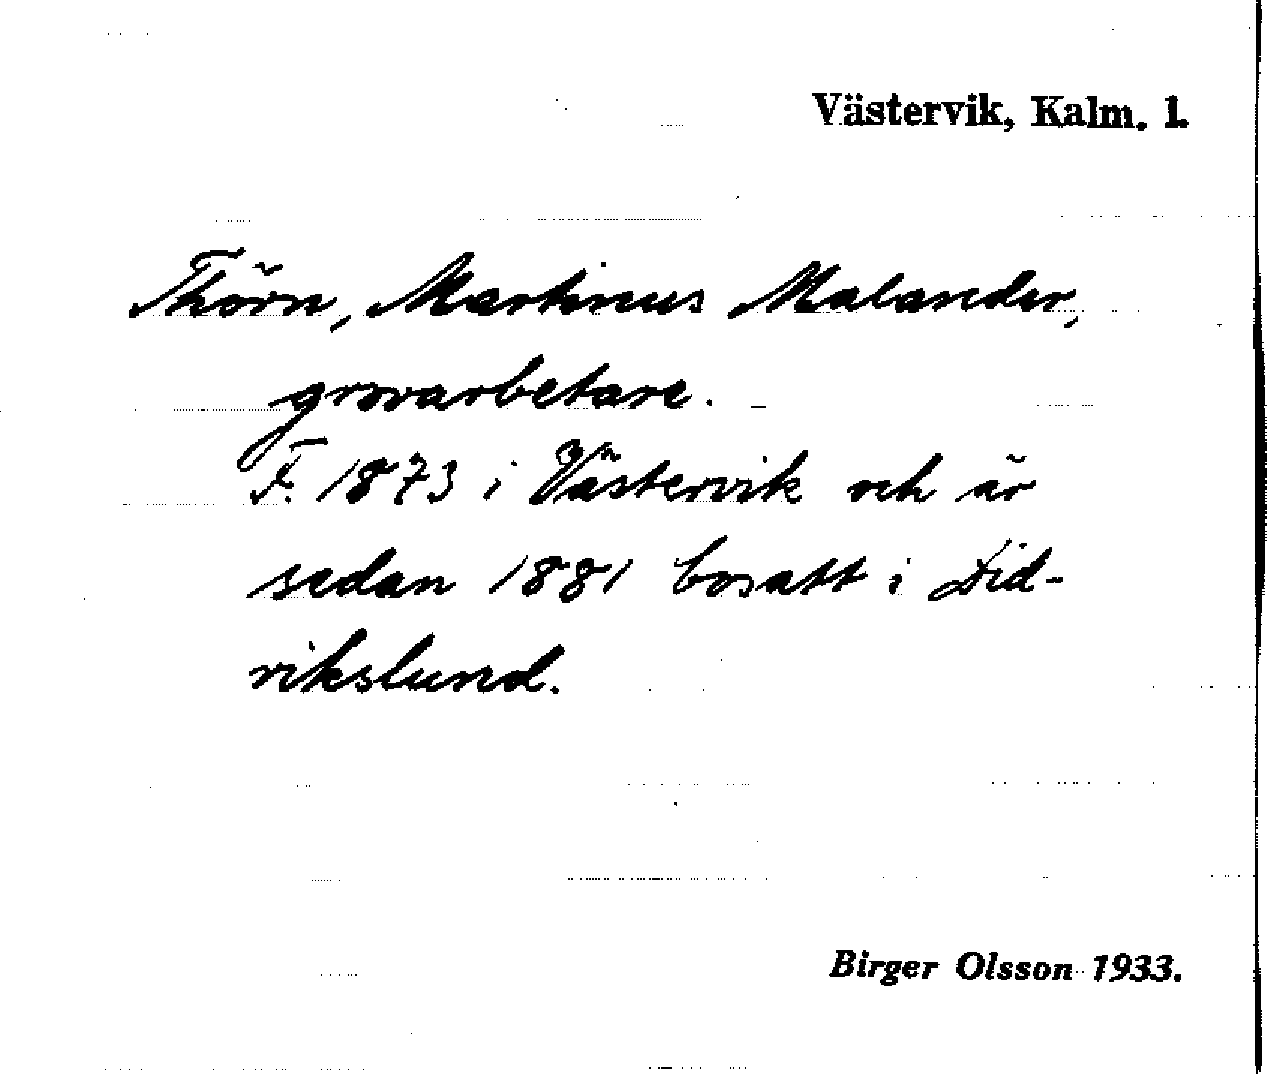 Västervik, Kalm. l.
Thörn, Martinus Malander,
grovarbetare.
F. 1873 i Västervik och är
sedan 1881 bosatt i Did-
rikslund.
Birger Olsson 1933.